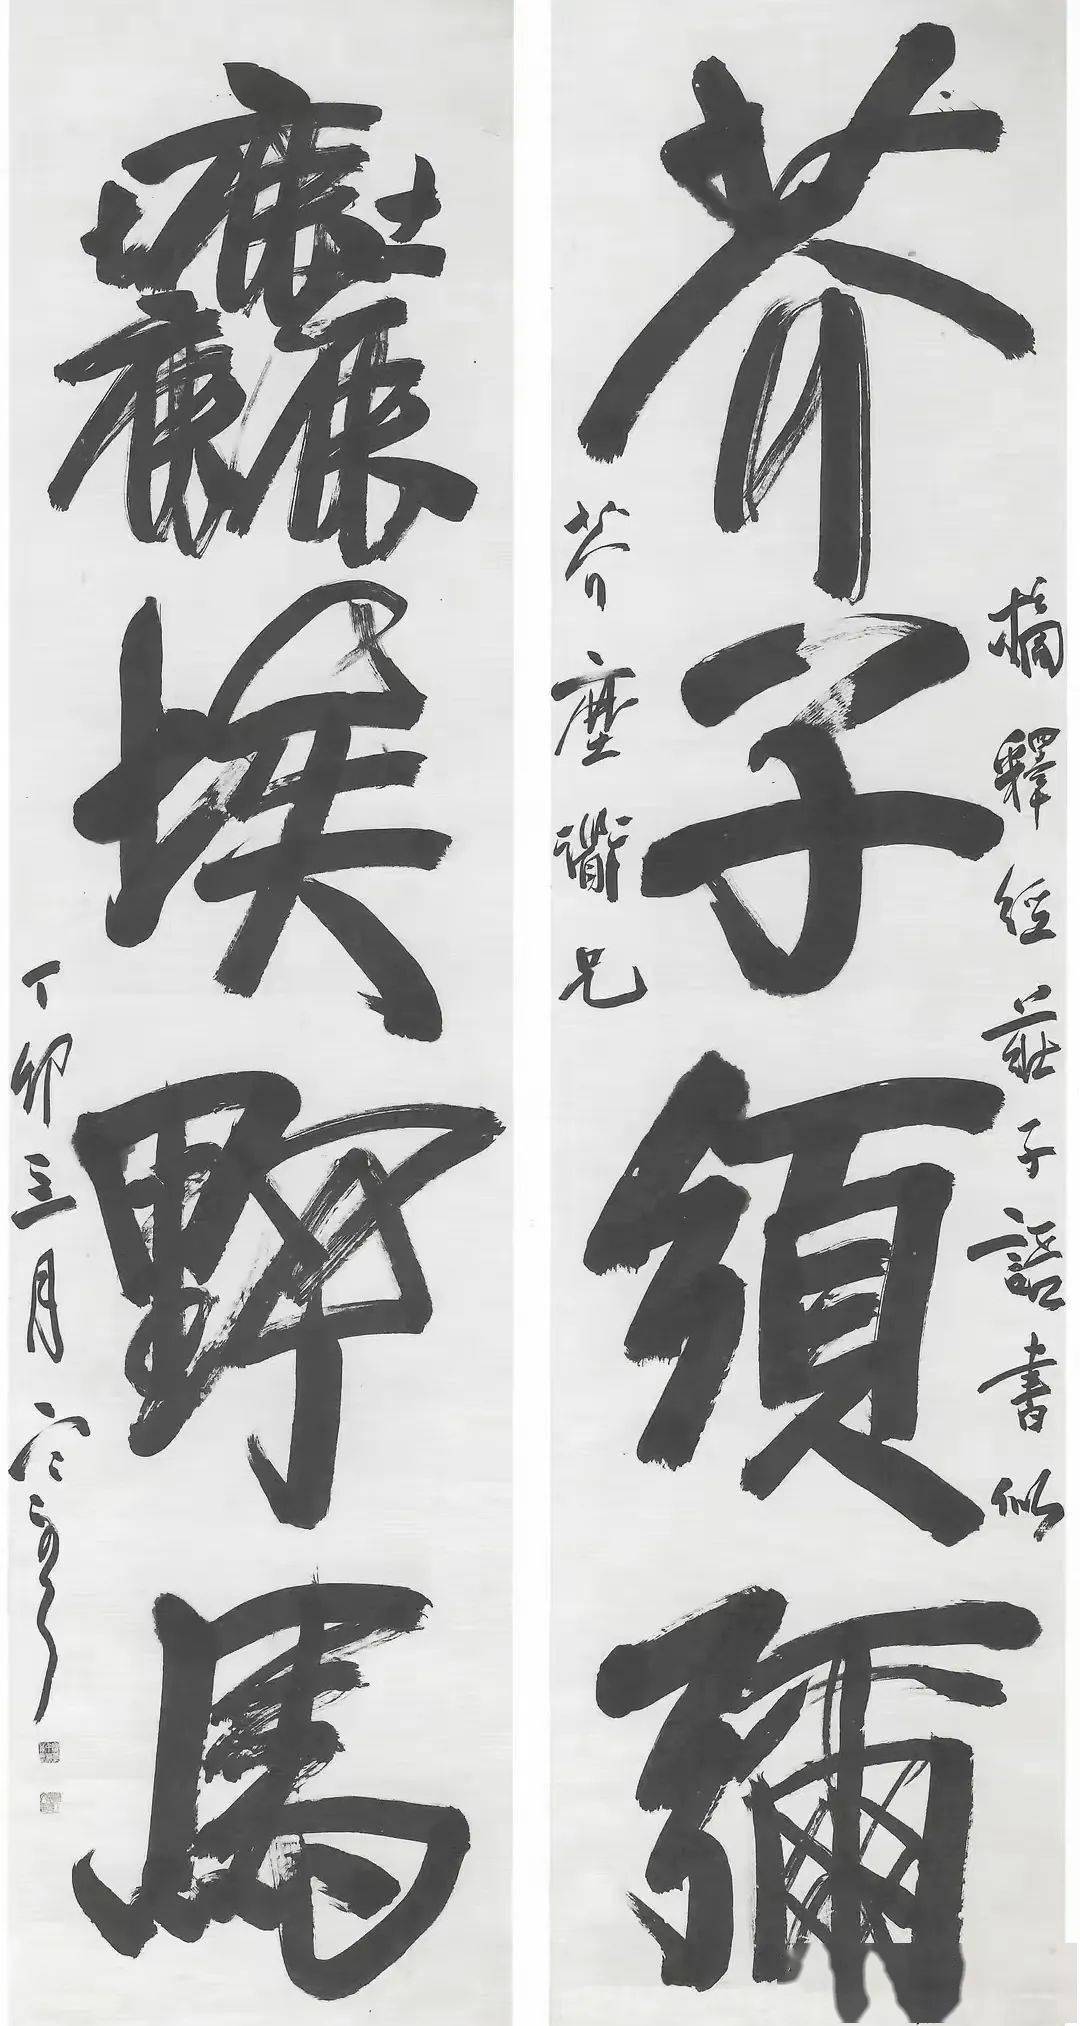 摘釋經莊子語書似
芥子須彌
芥塵衜兄
塵埃野馬
丁卯三月